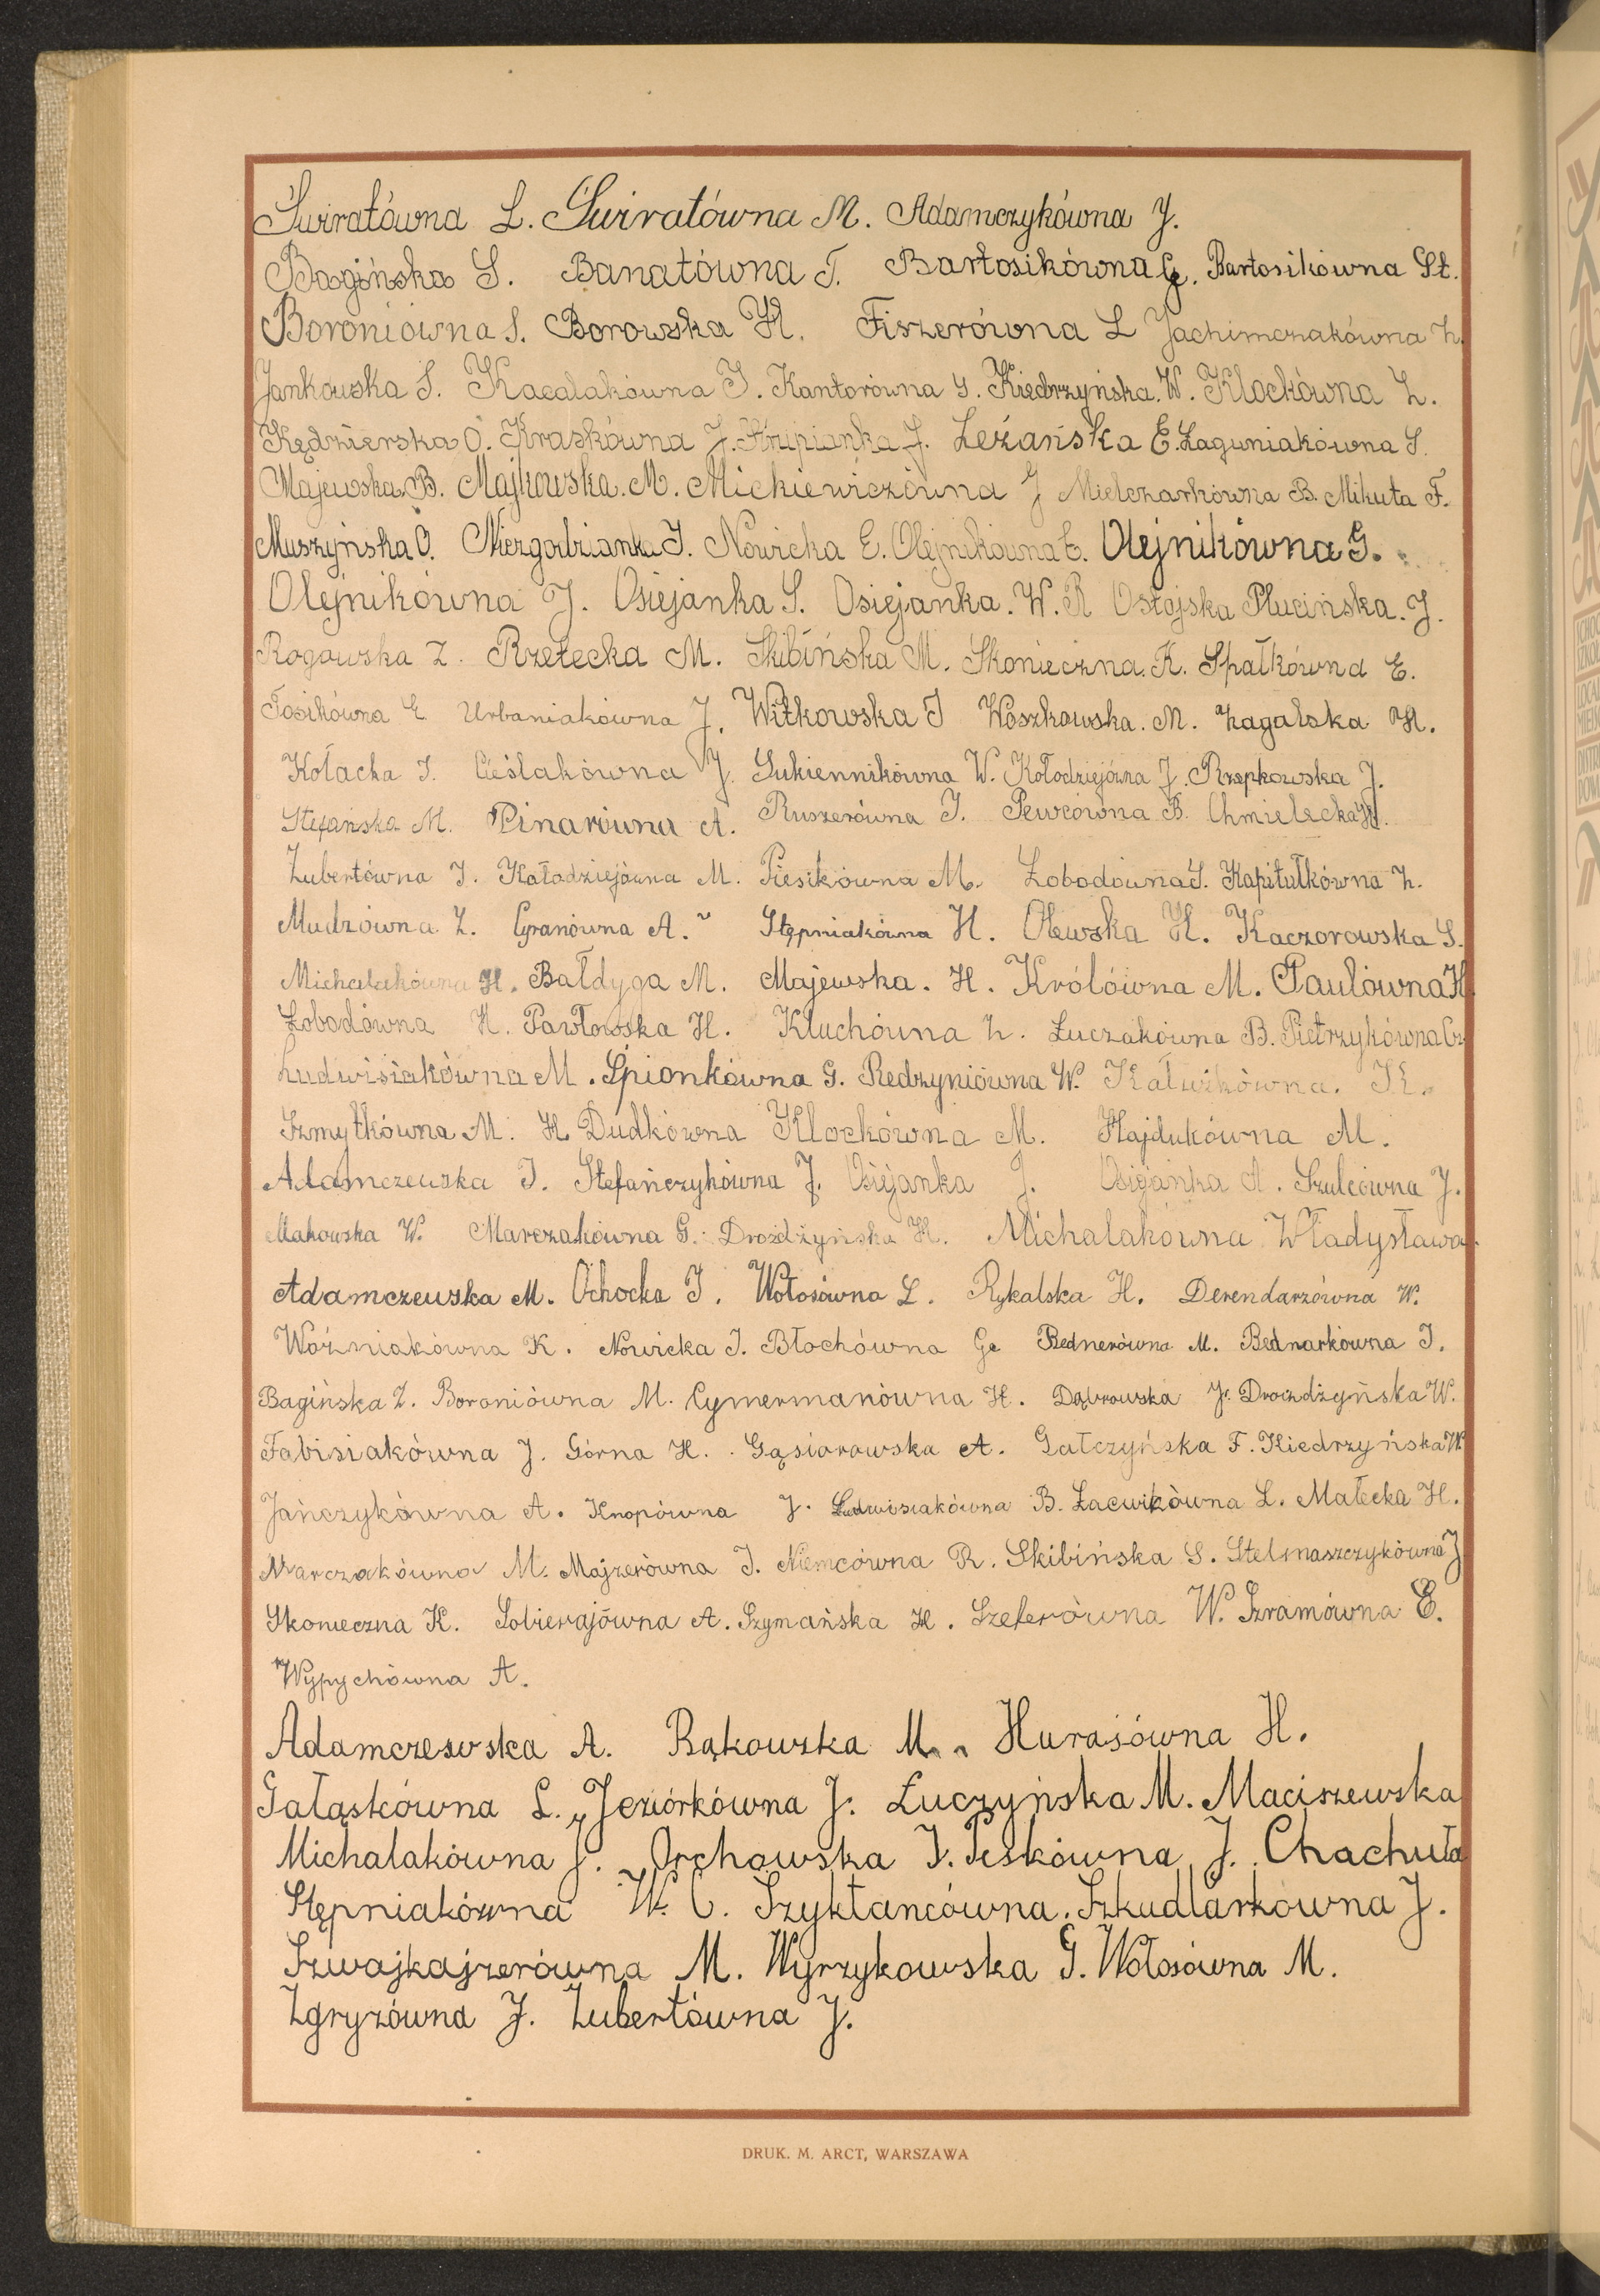 Świratówna L. Świratówna M. Adamczykówna J.
Bagińska S. Banatówna T. Bartosikówna G. Bartosikówna St.
Boroniówna S. Borowska H. Fiszerówna L Jachimczakówna Z.
Jankowska S. Kacalakówna I. Kantorówna I. Kiedrzyńska. W. Klockówna Z.
Kędzierska O. Kraskówna J. Krupianka J. Leżańska E. Łaguniakówna S.
Majewska B. Majkowska. M. Mickiewiczówna J Mielczarkówna B. Mikuta F.
Muszyńska O. Niezgodzianka J. Nowicka E. Olejnikówna E. Olejnikówna G.
Olejnikówna J. Osiejanka S. Osiejanka. W. R Ostojska Plucińska. J.
Rogowska Z. Rzetecka M. Skibińska M. Skonieczna. K. Spałkówna E.
Tosikówna E Urbaniakówna J. Witkowska I Woszkowska. M. Zagalska H.
Kołacka I. Cieślakówna J. Sukiennikówna W. Kołodziejówna J. Rzepkowska J.
Stefańska M. Pinarówna A. Ruszerówna I. Pewcówna B. Chmielecka H.
Zubertówna I. Kołodziejówna M. Piesikówna M. Łobodówna S. Kapitułkówna Z.
Mudzówna Z. Cyranówna A. Stępniakówna H. Olewska H. Kaczorowska S.
Michalakówna H. Bałdyga M. Majewska. H. Królówna M. Paulówna H
Łobodówna H. Pawłowska H. Kluchówna Z. Łuczakówna B. Pietrzykówna Cz
Ludwisiakówna M. Śpionkówna G. Redzyniówna W. Kałużkówna. K.
Szmytkówna M. H. Dudkówna Klockówna M. Hajdukówna M.
Adamczewska I. Stefańczykówna J. Osiejanka J. Osiejanka A. Szulcówna J.
Makowska W. Marczakówna G. Drożdżyńska H. Michalakówna Władysława.
Adamczewska M. Ochocka I. Wołosówna L. Rykalska H. Derendarzówna W.
Woźniakówna K. Nowicka I. Błochówna Ge Bednerówna M. Bednarkówna I.
Bagińska Z. Boroniówna M. Cymermanówna H. Dąbrowska J. Drożdżyńska W.
Fabisiakówna J. Górna H. Gąsiorowska A. Gałczyńska F. Kiedrzyńska W
Jańczykówna A. Knopówna J. Ludwisiakówna B. Łacwikówna L. Małecka H.
Marczakówna M. Majzerówna I. Niemcówna R. Skibińska S. Stelmaszczykówna J
Skonieczna K. Sobierajówna A. Szymańska H. Szeferówna W. Szramówna E.
Wypychówna A.
Adamczewska A. Rąkowska M. Hurasówna H.
Gałąskówna L. Jeziórkówna J. Łuczyńska M. Maciszewska
Michalakówna J. Orchowska I. Peskówna J. Chachuła
Stępniakówna W. C. Szyktancówna. Szkudlarkówna J.
Szwajkajzerówna M. Wyrzykowska G. Wołosówna M.
Zgryzówna J. Zubertówna J.
DRUK. M. ARCT, WARSZAWA